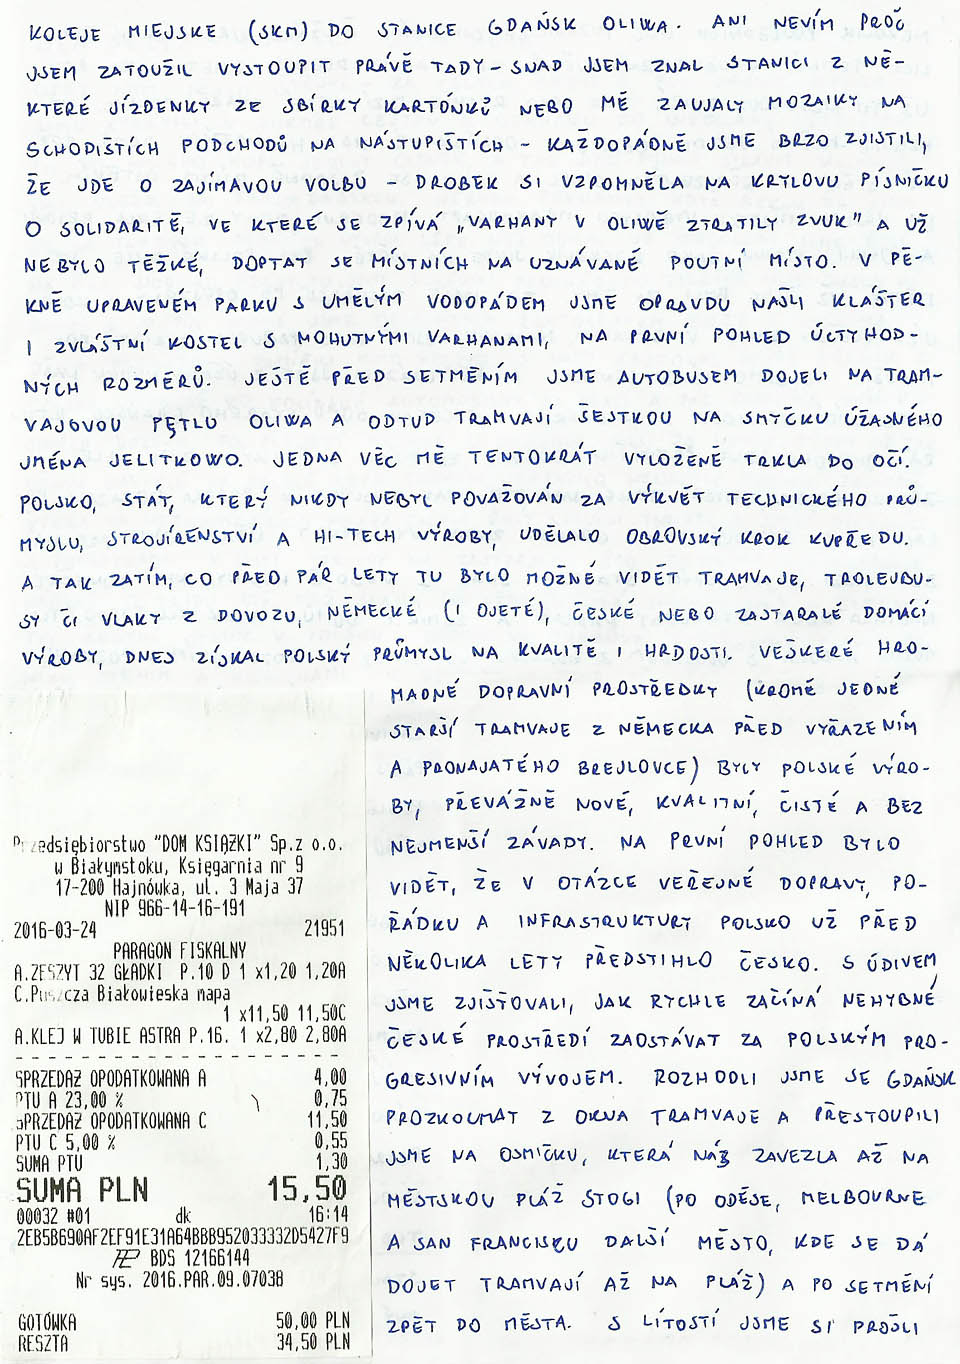 KOLEJE MIEJSKE (SKM) DO STANICE GDAŃSK OLIWA. ANI NEVÍM PROČ
JSEM ZATOUŽIL VYSTOUPIT PRÁVĚ TADY – SNAD JSEM ZNAL STANICI Z NĚ-
KTERÉ JÍZDENKY ZE SBÍRKY KARTÓNKŮ NEBO MĚ ZAUJALY MOZAIKY NA
SCHODIŠTÍCH PODCHODŮ NA NÁSTUPIŠTÍCH – KAŽDOPÁDNĚ JSME BRZO ZJISTILI,
ŽE JDE O ZAJÍMAVOU VOLBU – DROBEK SI VZPOMNĚLA NA KRYLOVU PÍSNIČKU
O SOLIDARITĚ, VE KTERÉ SE ZPÍVÁ „VARHANY V OLIWĚ ZTRATILY ZVUK" A UŽ
NEBYLO TĚŽKÉ, DOPTAT SE MÍSTNÍCH NA UZNÁVANÉ POUTNÍ MÍSTO. V PĚ-
KNĚ UPRAVENÉM PARKU S UMĚLÝM VODOPÁDEM JSME OPRAVDU NAŠLI KLÁŠTER
I ZVLÁŠTNÍ KOSTEL S MOHUTNÝMI VARHANAMI, NA PRVNÍ POHLED ÚCTYHOD-
NÝCH ROZMĚRŮ. JEŠTĚ PŘED SETMĚNÍM JSME AUTOBUSEM DOJELI NA TRAM-
VAJOVOU PĘTLU OLIWA A ODTUD TRAMVAJÍ ŠESTKOU NA SMYČKU ÚŽASNÉHO
JMÉNA JELITKOWO. JEDNA VĚC MĚ TENTOKRÁT VYLOŽENĚ TRKLA DO OČÍ.
POLSKO, STÁT, KTERÝ NIKDY NEBYL POVAŽOVÁN ZA VÝKVĚT TECHNICKÉHO PRŮ-
MYSLU, STROJÍRENSTVÍ A HI-TECH VÝROBY, UDĚLALO OBROVSKÝ KROK KUPŘEDU.
A TAK ZATÍM, CO PŘED PÁR LETY TU BYLO MOŽNÉ VIDĚT TRAMVAJE, TROLEJBU-
SY ČI VLAKY Z DOVOZU, NĚMECKÉ (I OJETÉ), ČESKÉ NEBO ZASTARALÉ DOMÁCÍ
VÝROBY, DNES ZÍSKAL POLSKÝ PRŮMYSL NA KVALITĚ I HRDOSTI. VEŠKERÉ HRO-
MADNÉ DOPRAVNÍ PROSTŘEDKY (KROMĚ JEDNÉ
STARŠÍ TRAMVAJE Z NĚMECKA PŘED VYŘAZENÍM
A PRONAJATÉHO BREJLOVCE) BYLY POLSKÉ VÝRO-
BY, PŘEVÁŽNĚ NOVÉ, KVALITNÍ, ČISTÉ A BEZ
NEJMENŠÍ ZÁVADY. NA PRVNÍ POHLED BYLO
VIDĚT, ŽE V OTÁZCE VEŘEJNÉ DOPRAVY, PO-
ŘÁDKU A INFRASTRUKTURY POLSKO UŽ PŘED
NĚKOLIKA LETY PŘEDSTIHLO ČESKO. S ÚDIVEM
JSME ZJIŠŤOVALI, JAK RYCHLE ZAČÍNÁ NEHYBNÉ
ČESKÉ PROSTŘEDÍ ZAOSTÁVAT ZA POLSKÝM PRO-
GRESIVNÍM VÝVOJEM. ROZHODLI JSME SE GDAŃSK
PROZKOUMAT Z OKNA TRAMVAJE A PŘESTOUPILI
JSME NA OSMIČKU, KTERÁ NÁS ZAVEZLA AŽ NA
MĚSTSKOU PLÁŽ STOGI (PO ODĚSE, MELBOURNE
A SAN FRANCISCU DALŠÍ MĚSTO, KDE SE DÁ
DOJET TRAMVAJÍ AŽ NA PLÁŽ) A PO SETMĚNÍ
ZPĚT DO MĚSTA. S LÍTOSTÍ JSME SI PROŠLI
Przedsiębiorstwo "DOM KSIĄŻKI" Sp.z o.o.
w Białymstoku, Księgarnia nr 9
17-200 Hajnówka, ul. 3 Maja 37
NIP 966-14-16-191
2016-03-24 21951
PARAGON FISKALNY
A.ZESZYT 32 GŁADKI P.10 D 1 x1,20 1,20A
C.Puszcza Białowieska mapa
1 x11,50 11,50C
A.KLEJ W TUBIE ASTRA P.16. 1 x2,80 2,80A
SPRZEDAŻ OPODATKOWANA A 4,00
PTU A 23,00 % 0,75
SPRZEDAŻ OPODATKOWANA C 11,50
PTU C 5,00 % 0,55
SUMA PTU 1,30
SUMA PLN 15,50
00032 #01 dk 16:14
2EB5B690AF2EF91E31A64BBB952033332D5427F9
BDS 12166144
Nr sys. 2016.PAR.09.07038
GOTÓWKA 50,00 PLN
RESZTA 34,50 PLN